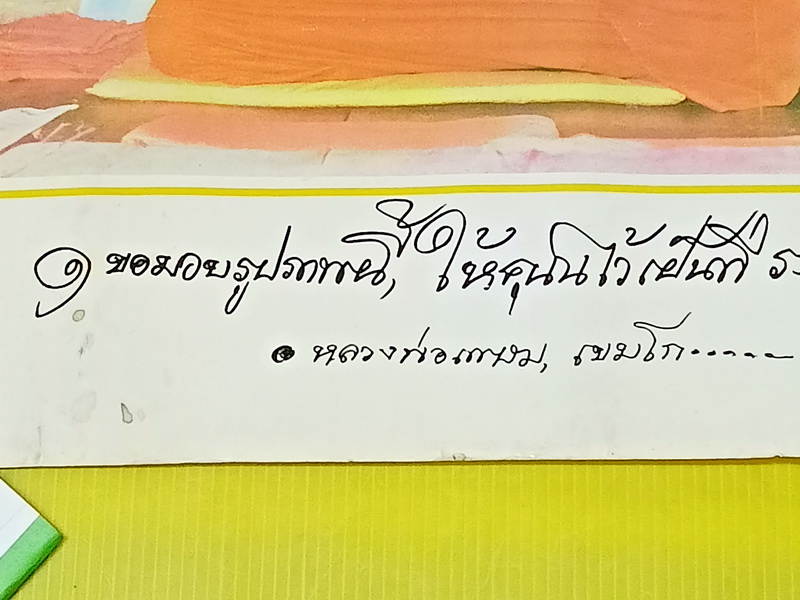 ๑ ขอมอบรูปภาพนี้, ให้คุณไว้เป็นที่ ระ
● หลวงพ่อเกษม, เขมโก.......